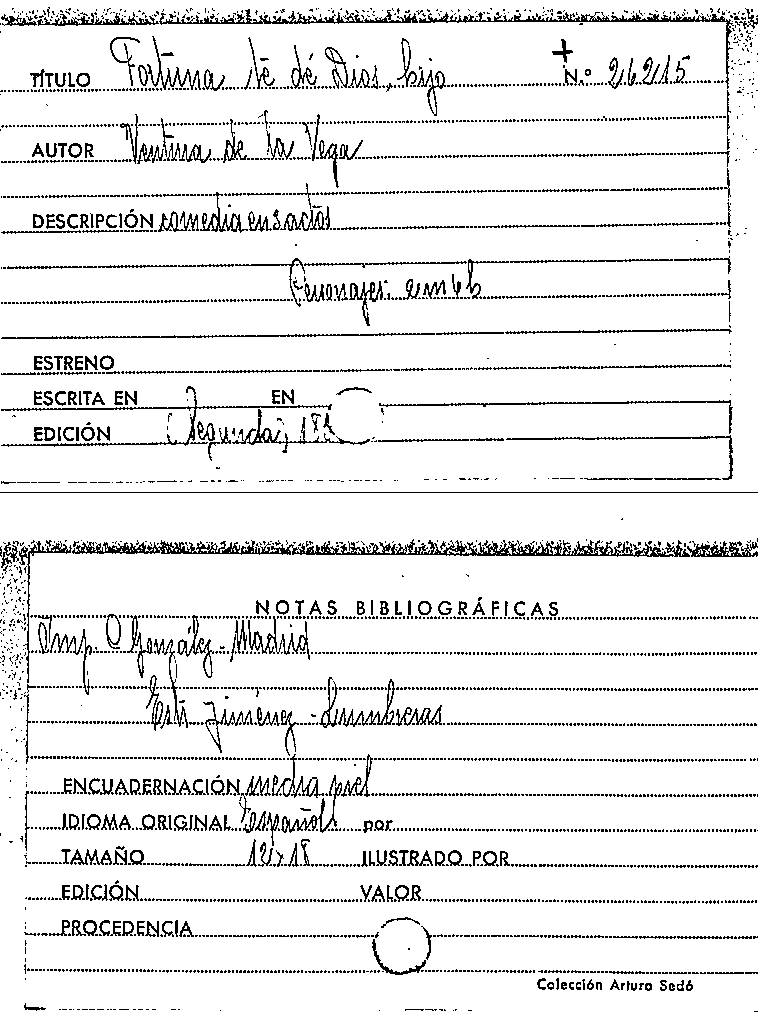 TÍTULO Fortuna te dé Dios, hijo N.º 26215
AUTOR Ventura de la Vega
DESCRIPCIÓN comedia en 3 actos
Personajes: 2 m 4 h
ESTRENO
ESCRITA EN EN
EDICIÓN (Segunda)
NOTAS BIBLIOGRÁFICAS
Imp. C González - Madrid
Est. Jiménez - Lumbreras
ENCUADERNACIÓN media piel
IDIOMA ORIGINAL Español por
TAMAÑO 12 x 18 ILUSTRADO POR
EDICIÓN VALOR
PROCEDENCIA
Colección Arturo Sedó